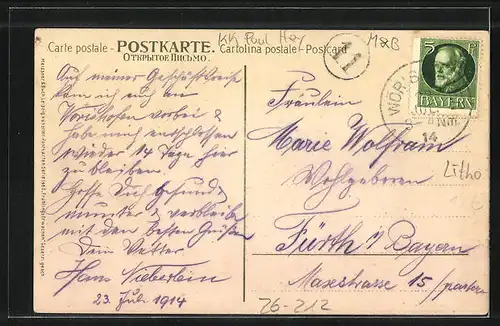 KK Paul Hey
M&B
Carte postale - POSTKARTE. Cartolina postale - Postcard
ОТКРЫТОЕ ПИСЬМО.
11
5 P
BAYERN
WÖRIS
14
Litho
Auf meiner Geschäftsreise
kam ich auch an
Wörishofen vorbei &
habe mich entschlossen
wieder 14 Tage hier
zu bleiben.
Hoffe Dich gesund &
munter & verbleibe
mit den besten Grüßen
Dein Vetter
Hans Nieberlein
23. Juli 1914
Fräulein
Marie Wolfram
Wohlgeboren
Fürth i/Bayern
Maxstrasse 15 / parterre
26-212